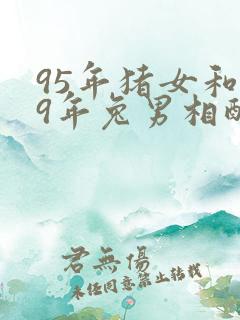 95年猪女和
9年兔男相配
君無傷
未经同意禁止转载